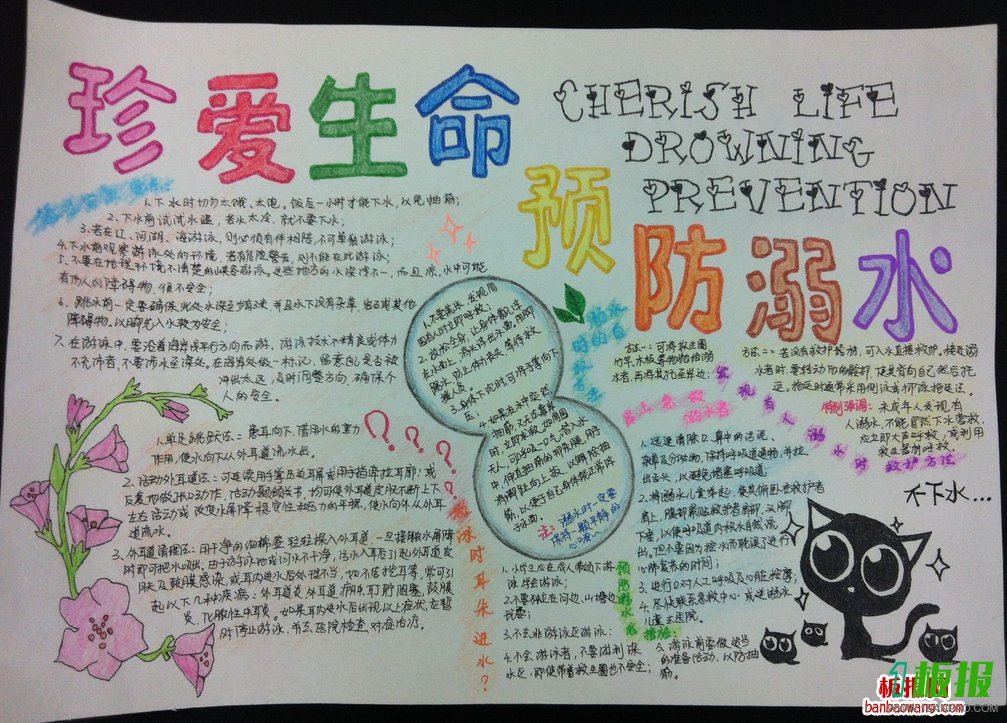 珍爱生命
CHERISH LIFE
DROWNING
PREVENTION
预防溺水
1.下水时切勿太饿、太饱。饭后一小时才能下水,以免抽筋;
2.下水前试试水温,若水太冷,就不要下水;
3.若在江、河、湖、海游泳,则必须有伴相陪,不可单独游泳;
4.下水前观察游泳处的环境,若有危险警告,则不能在此游泳;
5.不要在地理环境不清楚的峡谷游泳。这些地方的水深浅不一,而且凉,水中可能
有伤人的障碍物,很不安全;
6.跳水前一定要确保此处水深至少有3米,并且水下没有杂草、岩石或其他
障碍物。以脚先入水较为安全;
7.在游泳中,要沿着海岸线平行方向而游,游泳技术不精良或体力
不充沛者,不要涉水至深处。在海岸处做一标记,留意自己是否被
冲出太远,及时调整方向,确保个
人的安全。
1.不要慌张,发现周
围有人时立即呼救;
2.放松全身,让身体飘浮
在水面上,将头部浮出水面,用脚
踢水,防止体力丧失,等待救
援人员。
3.身体下沉时,可将手掌向下
压;
注:溺水时一定要
保持镇静的
心哦~
溺水
时的自
方法一:可将救生圈、
竹竿、木板等物抛给溺
水者,再将其拖至岸边;
方法二:若没有救护器材,可入水直接救护。接近溺
水者时要转动他的髋部,使其背向自己然后拖
运。拖运时通常采用侧泳或仰泳拖运法。
特别强调:未成年人发现有
人溺水,不能贸然下水营救,
应立即大声呼救,或利用
救生器材呼救
发现有人溺水时救护方法
岸上急救溺水者
1.迅速清除口、鼻中的污泥、
杂草及分泌物,保持呼吸道通畅,并拉
出舌头,以避免堵塞呼吸道;
2.将溺水儿童举起,使其俯卧在救护者
肩上,腹部紧贴救护者肩部,头脚
下垂,以使呼吸道内积水自然流
出。但不要因为控水而耽误了进行
心肺复苏的时间;
3.进行口对人工呼吸及心脏按摩;
4.尽快联系急救中心或送溺水
儿童去医院。
不下水...
1.单足跳跃法:患耳向下,借用水的重力
作用,使水向下从外耳道流出。
2.活动外耳道法:可连续用手掌压迫耳屏或用手指牵拉耳廓;或
反复地做张口动作,活动颞颌关节,均可使外耳道皮肤不断上下
左右活动或改变水屏障稳定性和压力的平衡,使水向外从外耳
道流出。
3.外耳道清理法:用干净的细棉签轻轻探入外耳道,一旦接触水屏障
时即可把水吸出。由于游泳池或河水不干净,污水入耳后引起外耳道皮
肤及鼓膜感染,或耳内进水后处理不当,如不居挖耳等,常可引
起以下几种疾病:外耳道炎、外耳道疖肿、耵聍阻塞、鼓膜
炎、化脓性中耳炎。如果耳内进水后出现以上症状,应暂
时停止游泳,并去医院检查、对症治疗。
???
游泳时耳朵进水?
预防溺水的措施:
1.小学生应在成人带领下游
泳学会游泳;
2.不要独立在河边、山塘边
玩耍;
3.不去非游泳区游泳;
4.不会游泳者,不要游到深
水区,即使带着救生圈也不安全;
5.游泳前要做适当
的准备活动,以防抽
筋。
板报网
banbaowang.com
板报